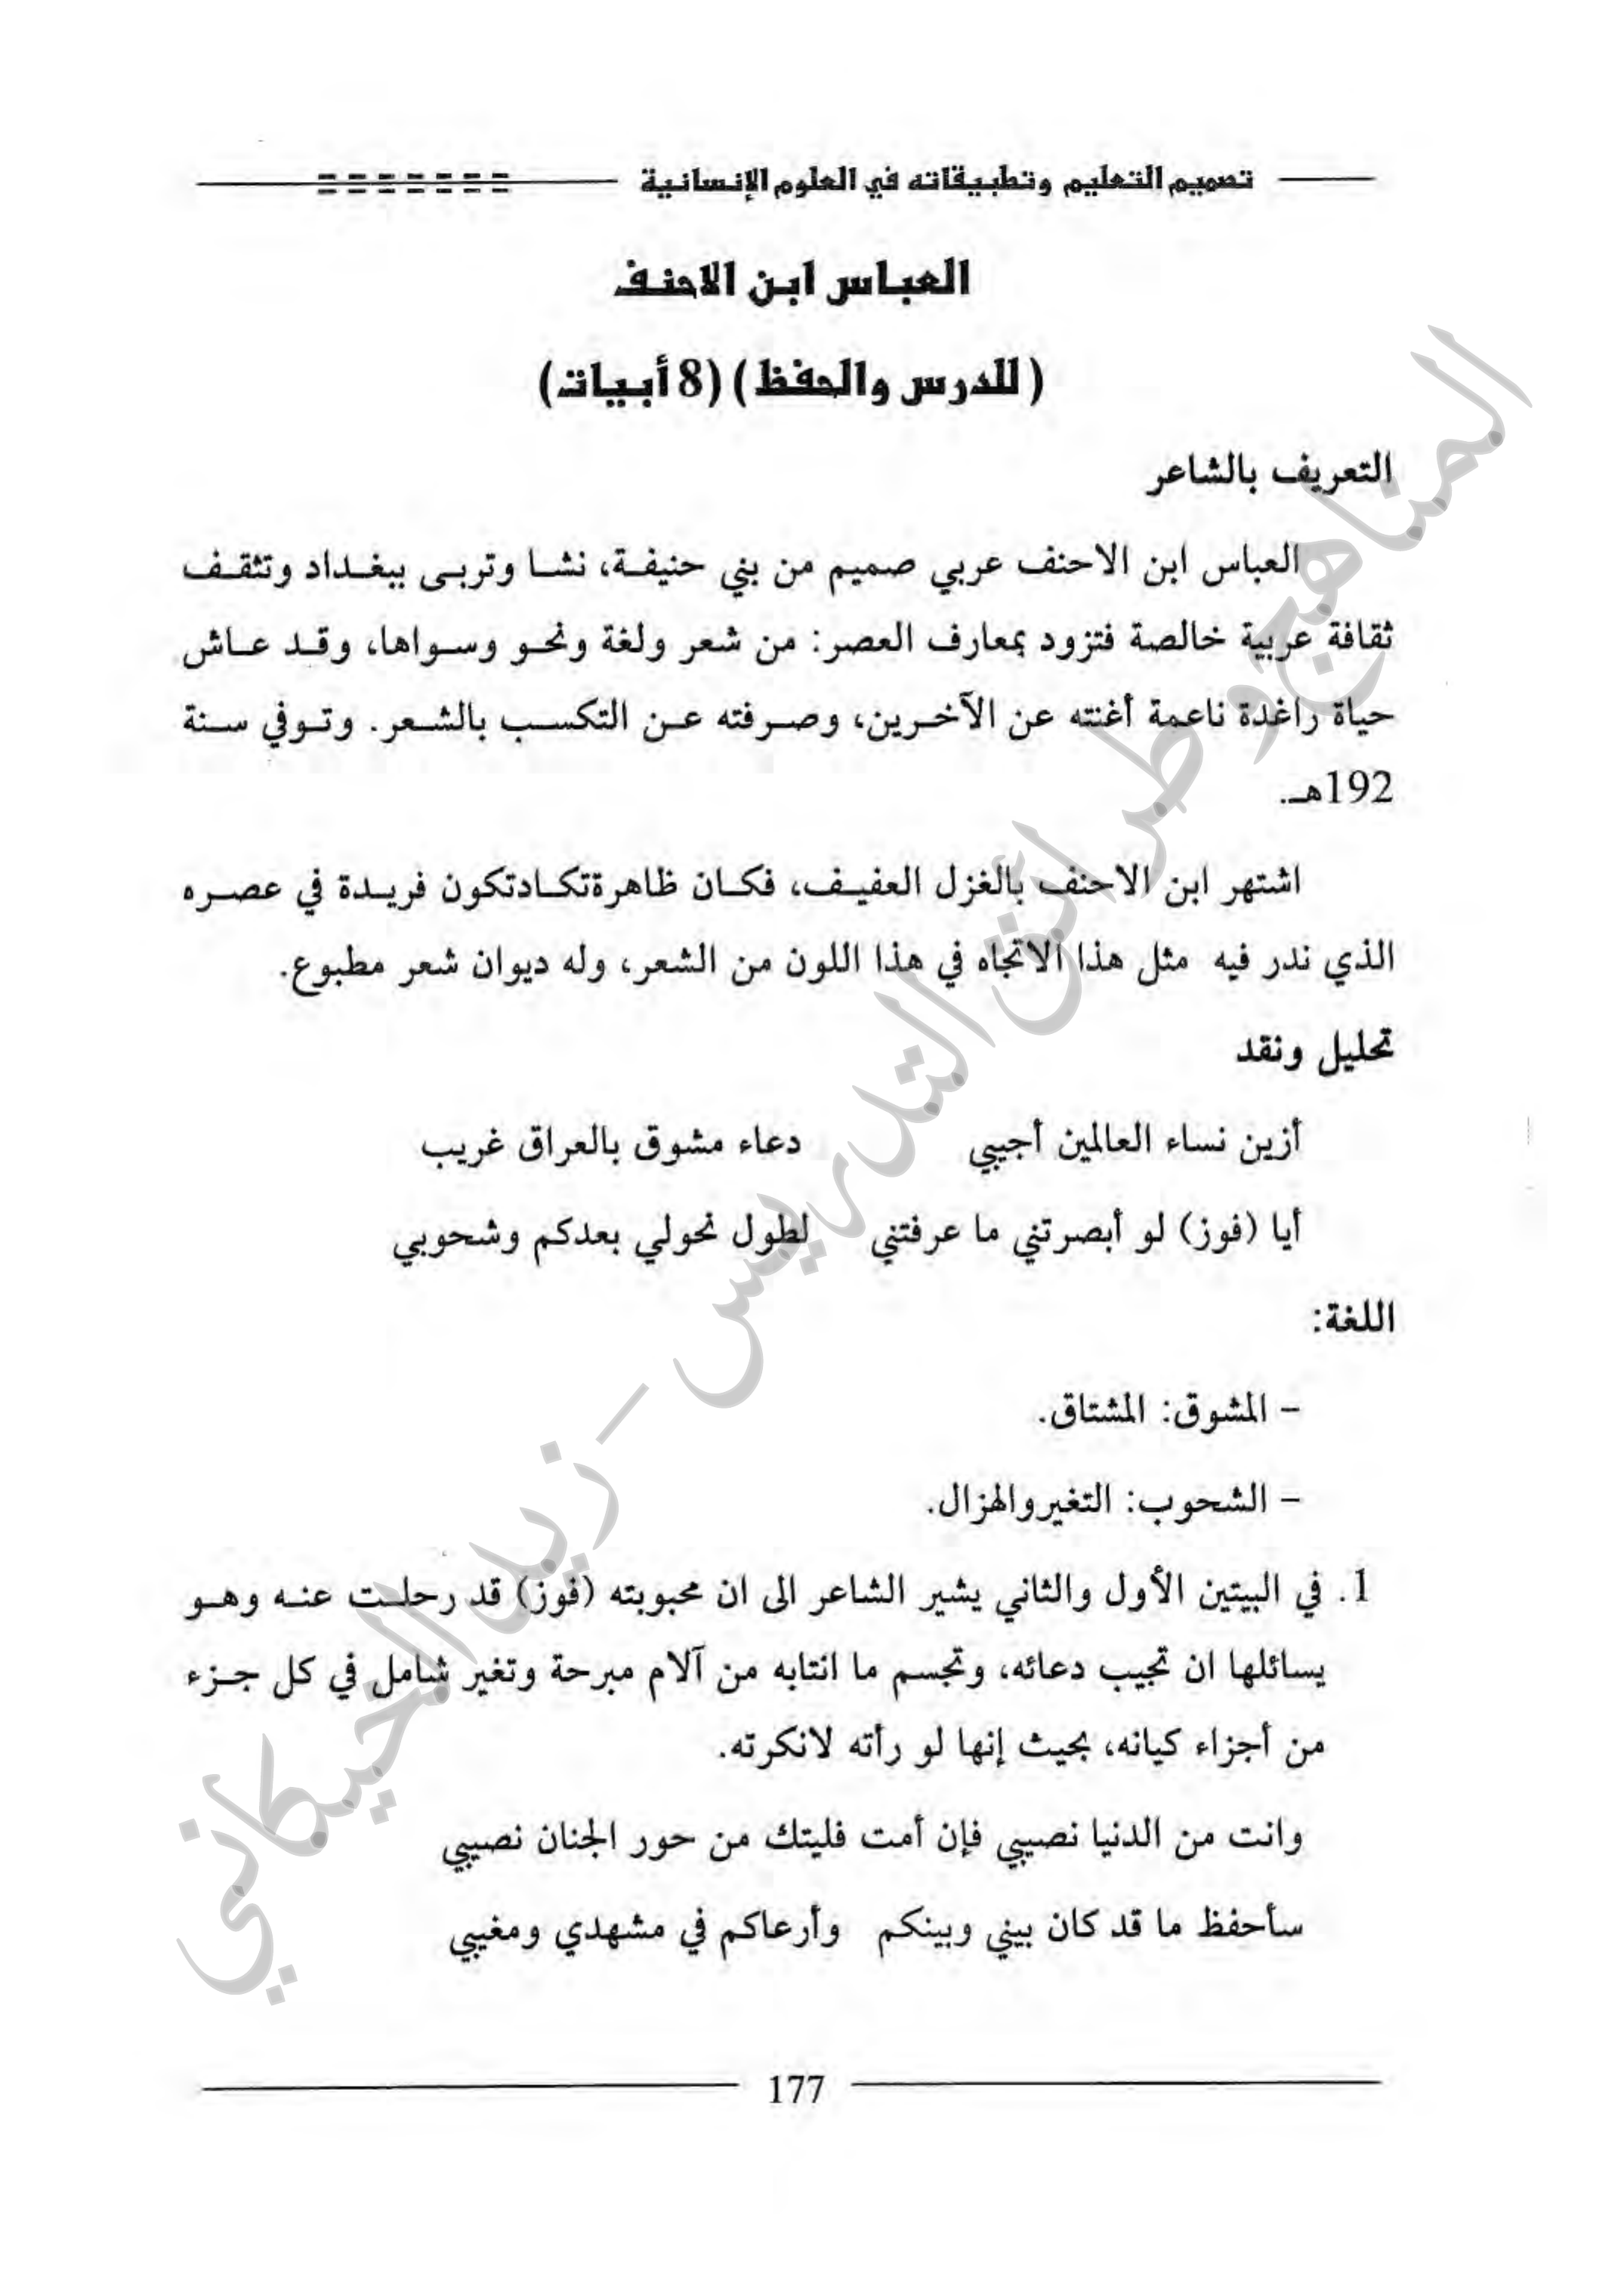 تصميم التعليم وتطبيقاته في العلوم الإنسانية
العباس ابن الاحنف
(للدرس والحفظ) (8 أبيات)
التعريف بالشاعر
العباس ابن الاحنف عربي صميم من بني حنيفة، نشا وتربى ببغداد وتثقف
ثقافة عربية خالصة فتزود بمعارف العصر: من شعر ولغة ونحو وسواها، وقد عاش
حياة راغدة ناعمة أغنته عن الآخرين، وصرفته عن التكسب بالشعر. وتوفي سنة
192هـ.
اشتهر ابن الاحنف بالغزل العفيف، فكان ظاهرةتكادتكون فريدة في عصره
الذي ندر فيه مثل هذا الاتجاه في هذا اللون من الشعر، وله ديوان شعر مطبوع.
تحليل ونقد
أزين نساء العالمين أجيبي دعاء مشوق بالعراق غريب
أيا (فوز) لو أبصرتني ما عرفتني لطول نحولي بعدكم وشحوبي
اللغة:
- المشوق: المشتاق.
- الشحوب: التغيروالهزال.
1. في البيتين الأول والثاني يشير الشاعر الى ان محبوبته (فوز) قد رحلت عنه وهو
يسائلها ان تجيب دعائه، وتجسم ما انتابه من آلام مبرحة وتغير شامل في كل جزء
من أجزاء كيانه، بحيث إنها لو رأته لانكرته.
وانت من الدنيا نصيبي فإن أمت فليتك من حور الجنان نصيبي
سأحفظ ما قد كان بيني وبينكم وأرعاكم في مشهدي ومغيبي
177
المناهج وطرائق التدريس - زيد الخيكاني